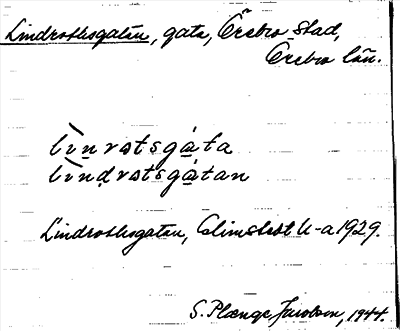 Lindrothsgatan, gata, Örebro stad,
Örebro län.
lìnrotsgáta
lìndrotsgátan
Lindrothsgatan, 1929.
S. Plænge Jacobson, 1944.